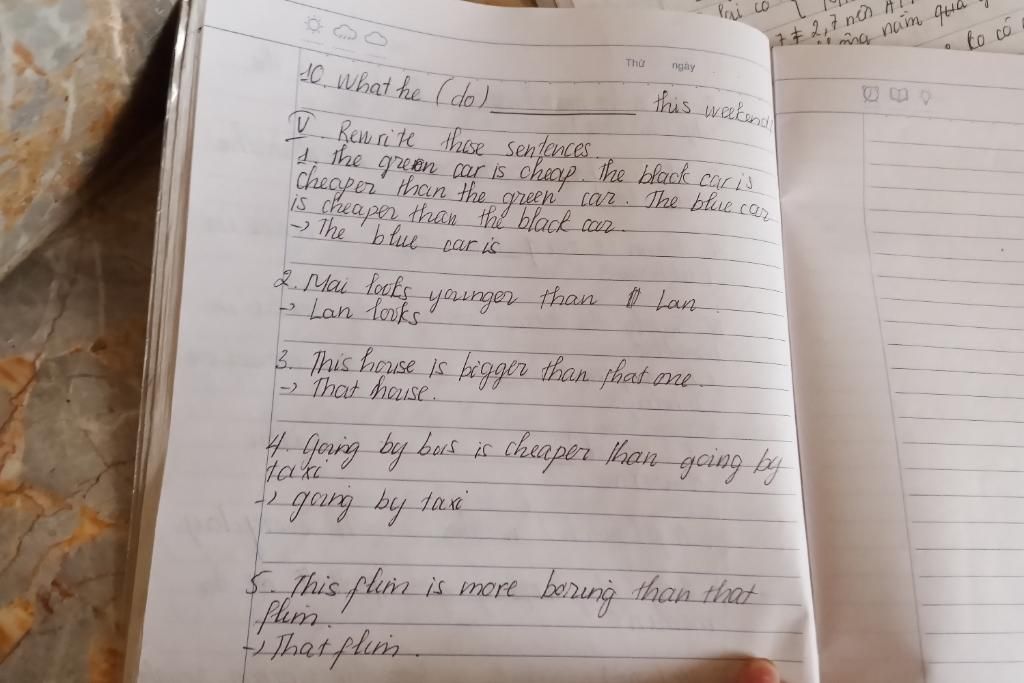 Thứ ngày
10. What he (do) __________ this weekend
V. Rewrite these sentences.
1. The green car is cheap. The black car is
cheaper than the green car. The blue car
is cheaper than the black car.
-> The blue car is
2. Mai looks younger than Lan.
-> Lan looks
3. This house is bigger than that one.
-> That house.
4. Going by bus is cheaper than going by
taxi
-> going by taxi
5. This flim is more boring than that
flim.
-> That flim.
2,7 nên
năm qua
có